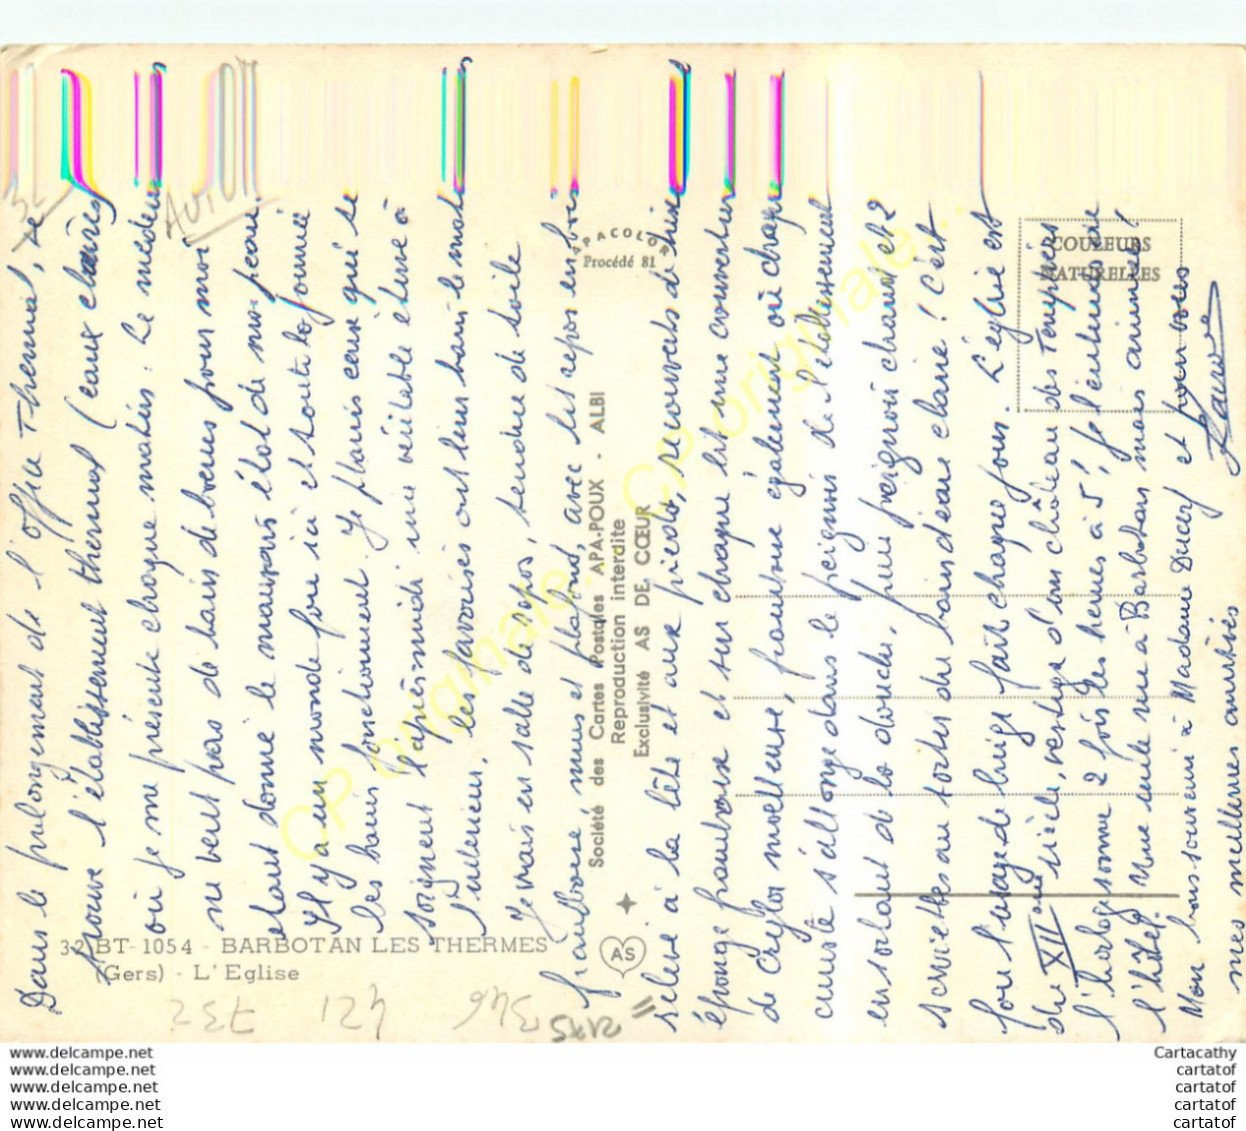 Dans le prolongement de l'office Thermal, se
trouve l'établissement thermal (eaux chaudes)
où je me présente chaque matin. Le médecin
ne veut pas de bains de boues pour moi
étant donné le mauvais état de ma peau.
Il y a un monde fou ici et toute la journée
les bains fonctionnent. Je plains ceux qui se
soignent l'après-midi une véritable étuve à
l'intérieur. Les favorisés ont leur bain le matin
Je vais en salle de repos, tendue de toile
framboise, murs et plafond, avec lits repos en bois
relevé à la tête et aux pieds, recouverts de tissu
éponge framboise et sur chaque lit une couverture
de Caylor moelleuse, framboise également où chaque
curiste s'allonge dans le peignoir de l'établissement
en sortant de la douche, puis peignoir chaud et 2
serviettes au sortir du bain d'eau claire ! C'est
fou l'usage de linge fait chaque jour. L'église est
du XIIème siècle, vestige d'un château des Templiers
l'horloge sonne 2 fois les heures à 5', je l'entends de
l'hôtel. Une seule rue à Barbotan mais animée !
Mon bon souvenir à Madame Ducez et pour vous
mes meilleures amitiés
COULEURS
NATURELLES
APACOLOR
Procédé 81
Société des Cartes Postales APA-POUX - ALBI
Reproduction interdite
Exclusivité AS DE CŒUR
AS
32 BT-1054 - BARBOTAN LES THERMES
(Gers) - L'Eglise
732
421
346
2175
32
CP originale... CP originale...
www.delcampe.net
www.delcampe.net
www.delcampe.net
www.delcampe.net
www.delcampe.net
Cartacathy
cartatof
cartatof
cartatof
cartatof